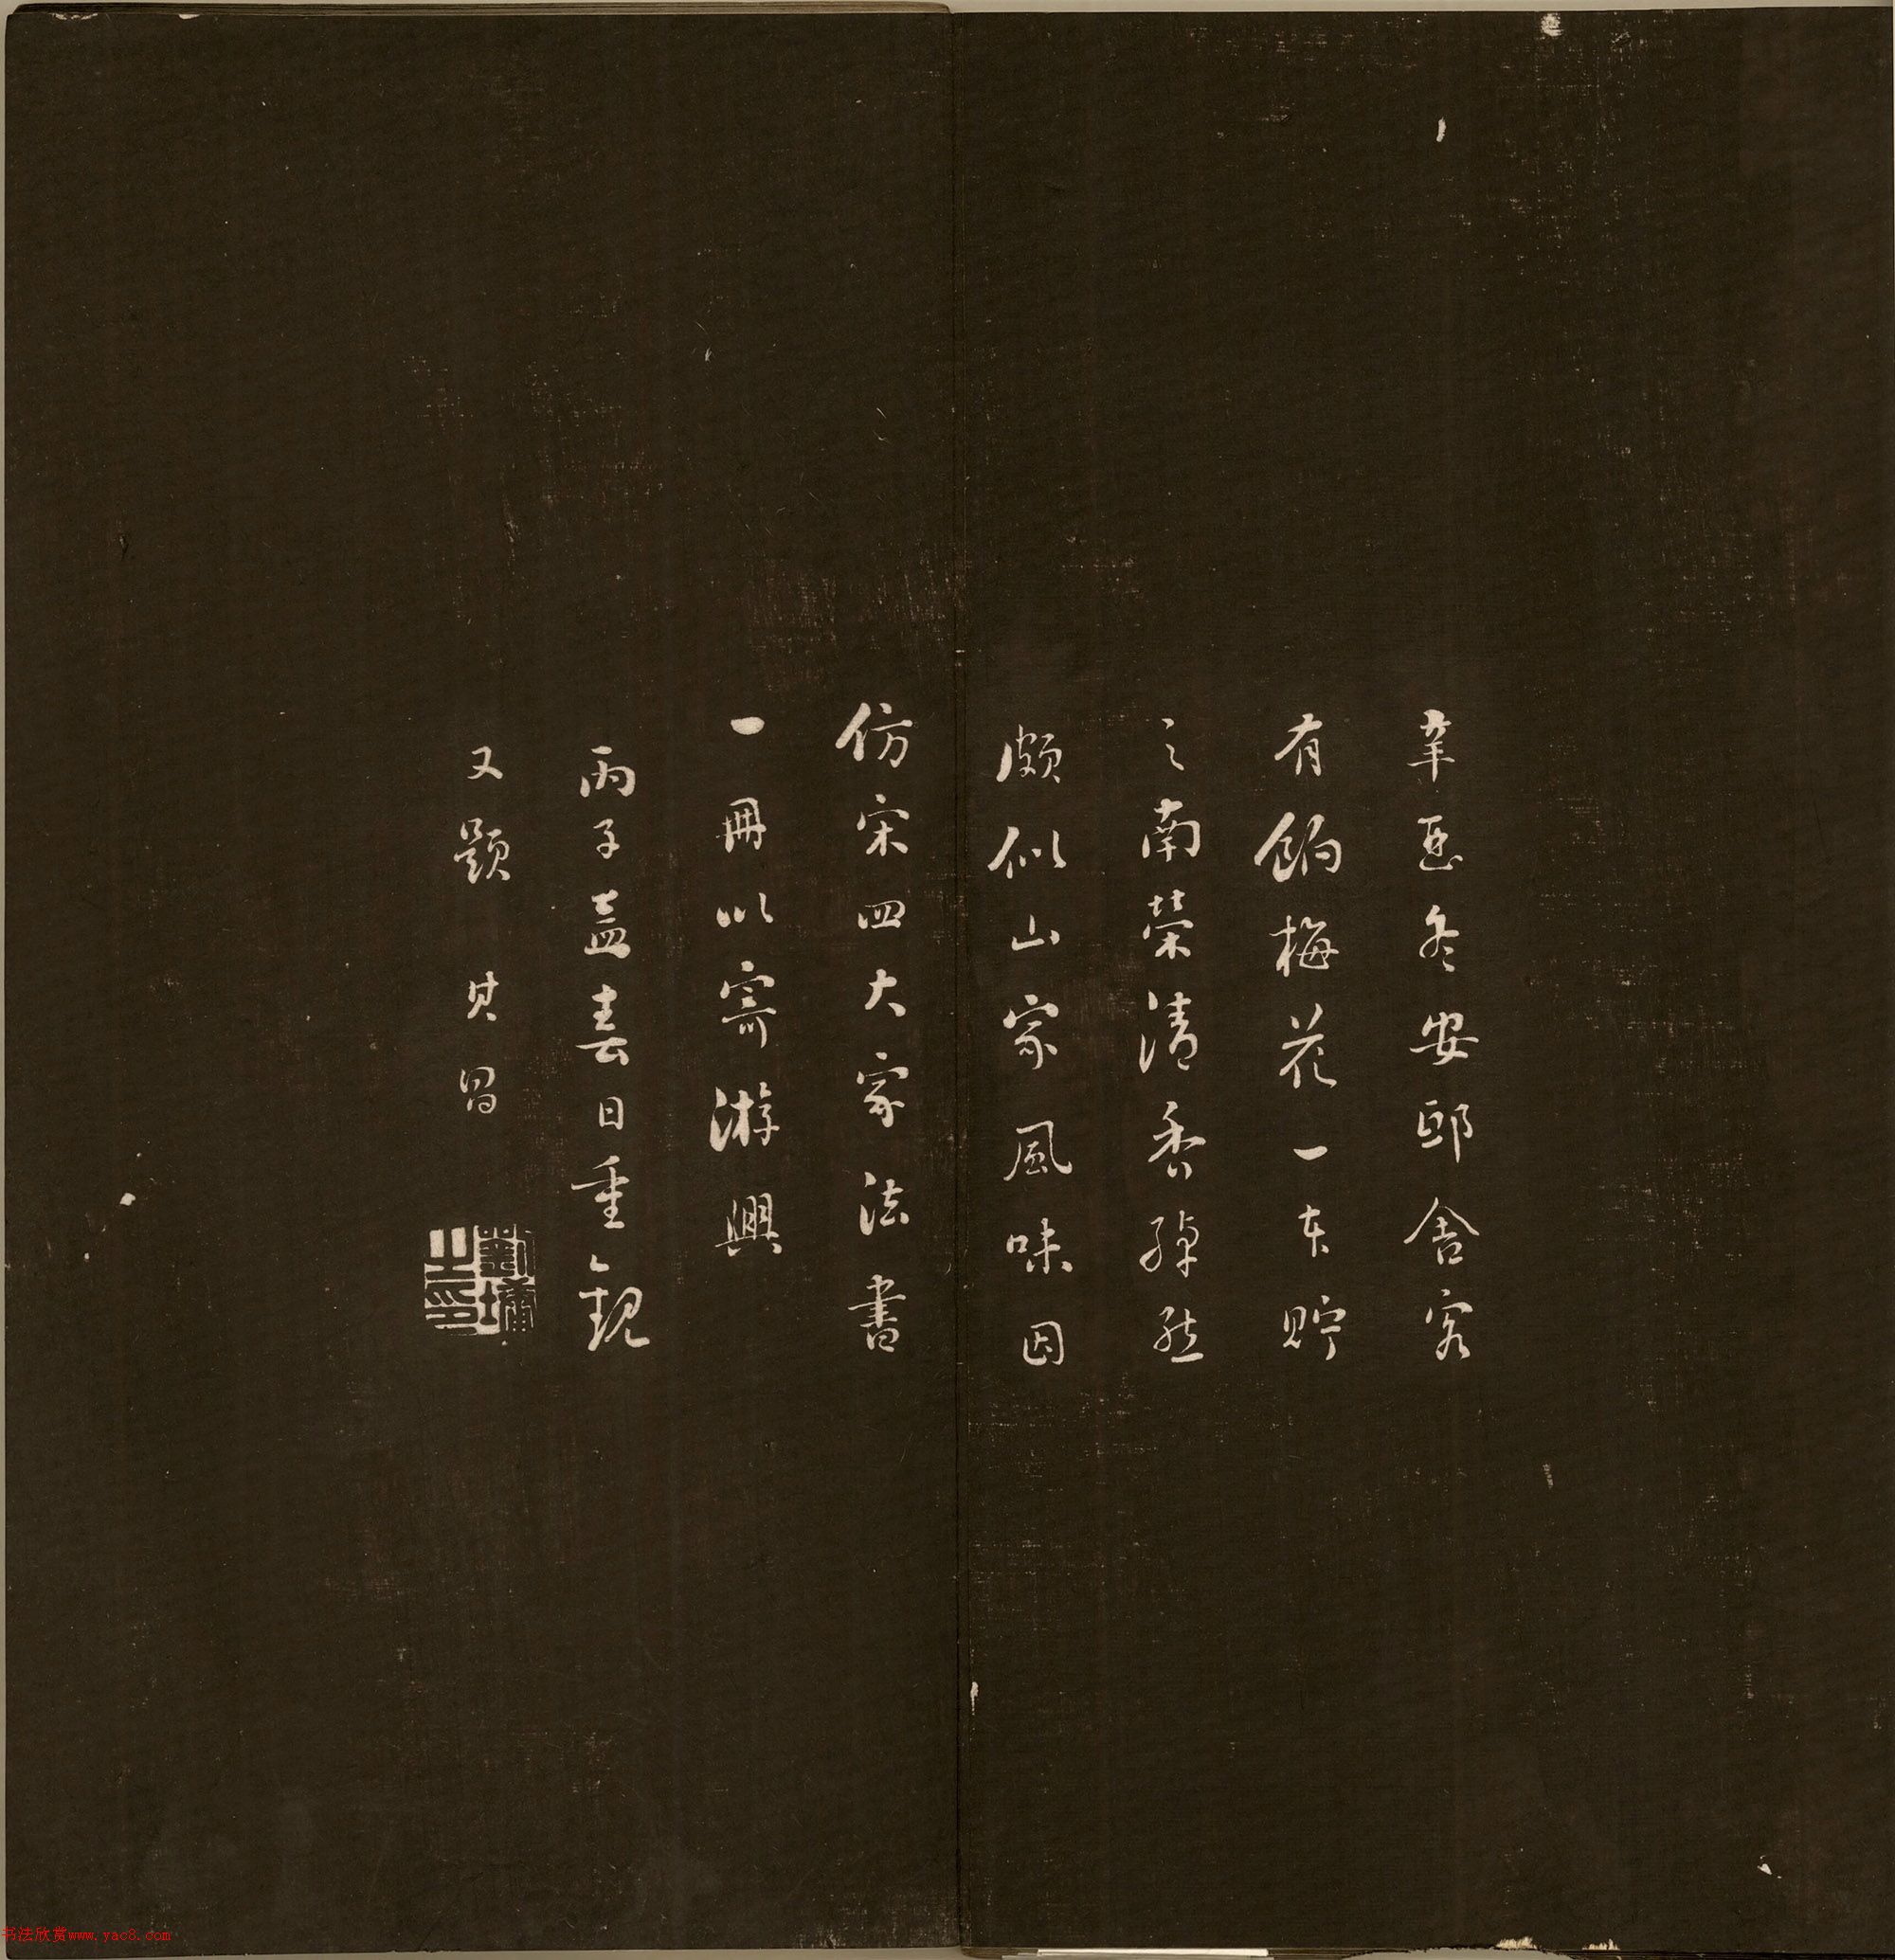 辛亥冬安邱舍客
有餉梅花一本貯
之南榮清香綽然
頗似山家風味因
仿宋四大家法書
一冊以寄游興
丙子孟春日重觀
又題 其昌
劉墉之印
书法欣赏www.yac8.com